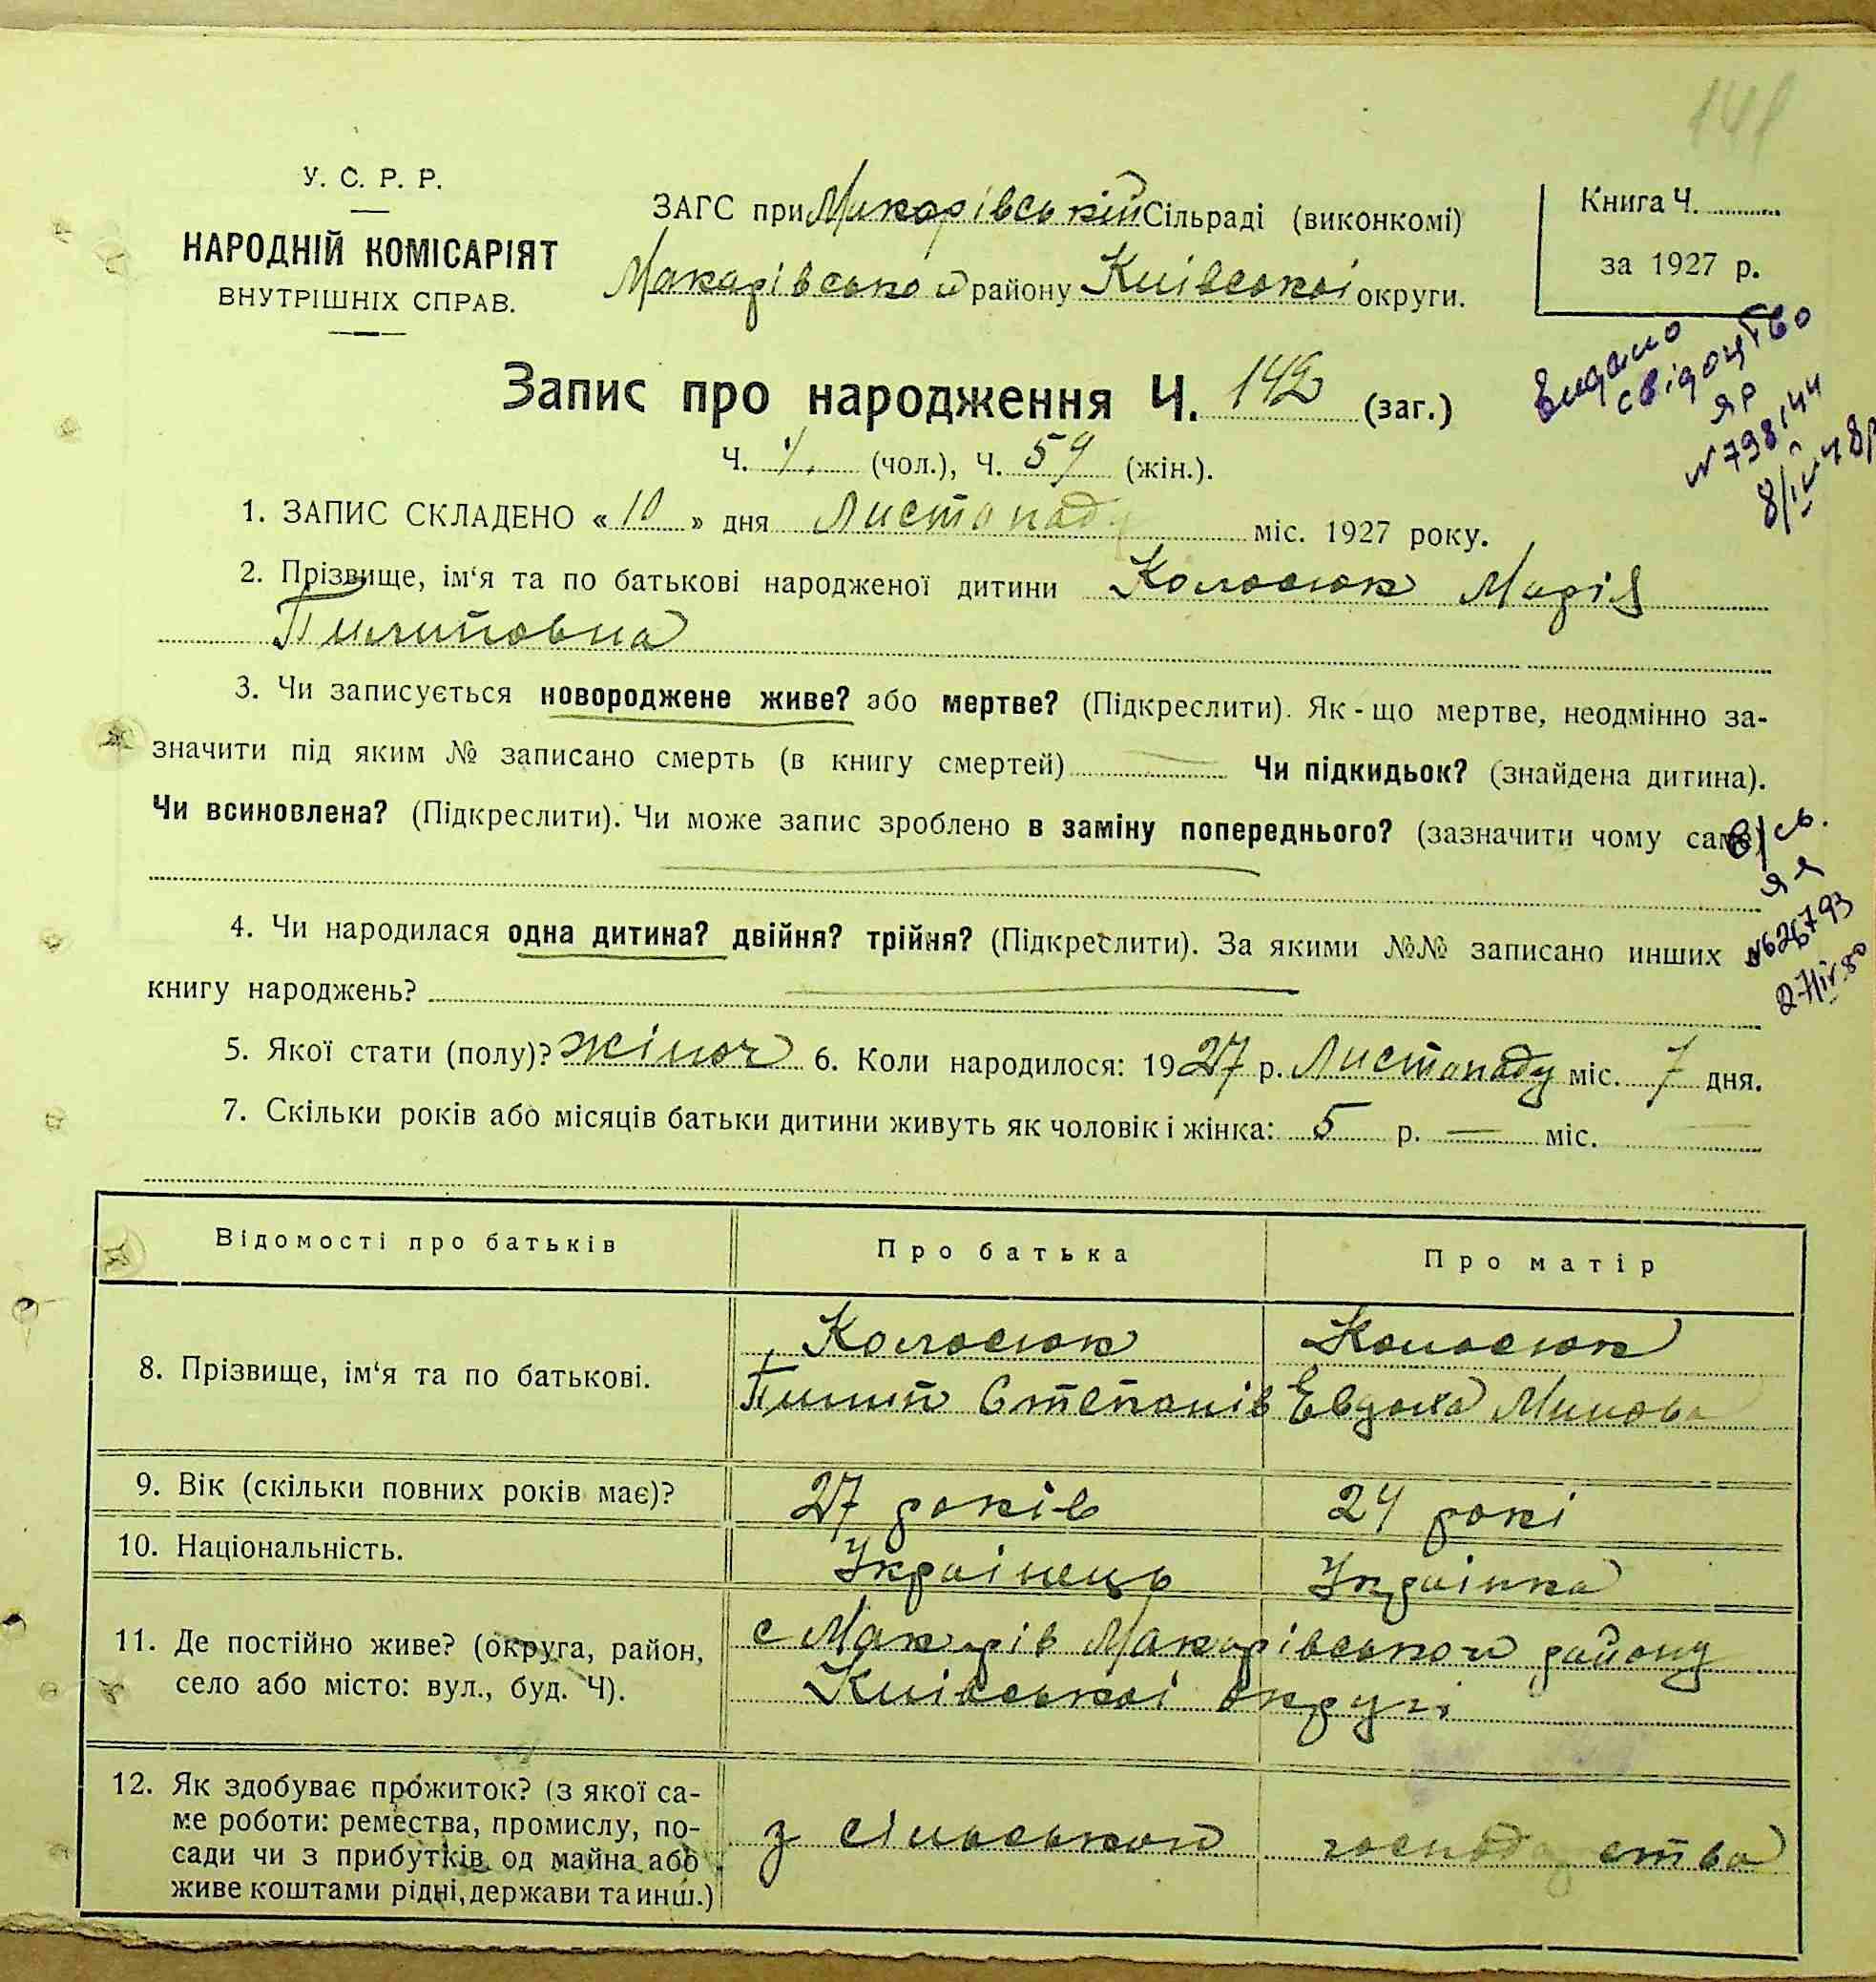 У. С. Р. Р.
НАРОДНІЙ КОМІСАРІЯТ
ВНУТРІШНІХ СПРАВ.
ЗАГС при Макарівській Сільраді (виконкомі)
Макарівського району Київської округи.
Книга Ч.
за 1927 р.
Запис про народження Ч. 142 (заг.)
Ч. (чол.), Ч. 59 (жін.).
Видано
свідоцтво
ЯР
N 798144
1. ЗАПИС СКЛАДЕНО «10» дня Листопаду міс. 1927 року.
2. Прізвище, ім‘я та по батькові народженої дитини Колосюк Марія
Пилиповна
3. Чи записується новороджене живе? або мертве? (Підкреслити). Як-що мертве, неодмінно за-
значити під яким № записано смерть (в книгу смертей) — Чи підкидьок? (знайдена дитина).
Чи всиновлена? (Підкреслити). Чи може запис зроблено в заміну попереднього? (зазначити чому саме)
в/св.
ЯЯ
4. Чи народилася одна дитина? двійня? трійня? (Підкреслити). За якими №№ записано инших в
книгу народжень? —
5. Якої стати (полу)? жіноч 6. Коли народилося: 1927 р. Листопаду міс. 7 дня.
7. Скільки років або місяців батьки дитини живуть як чоловік і жінка: 5 р. — міс.
Відомості про батьків Про батька Про матір
8. Прізвище, ім‘я та по батькові. Колосюк Колосюк
Пилип Степанів Евдоха Минова
9. Вік (скільки повних років має)? 27 років 24 рокі
10. Національність. Украінець Украінка
11. Де постійно живе? (округа, район,
село або місто: вул., буд. Ч).
с Макарів Макарівського району
Киівськоі округі
12. Як здобуває прожиток? (з якої са-
ме роботи: ремества, промислу, по-
сади чи з прибутків од майна або
живе коштами рідні, держави та инш.)
з сільського господарства